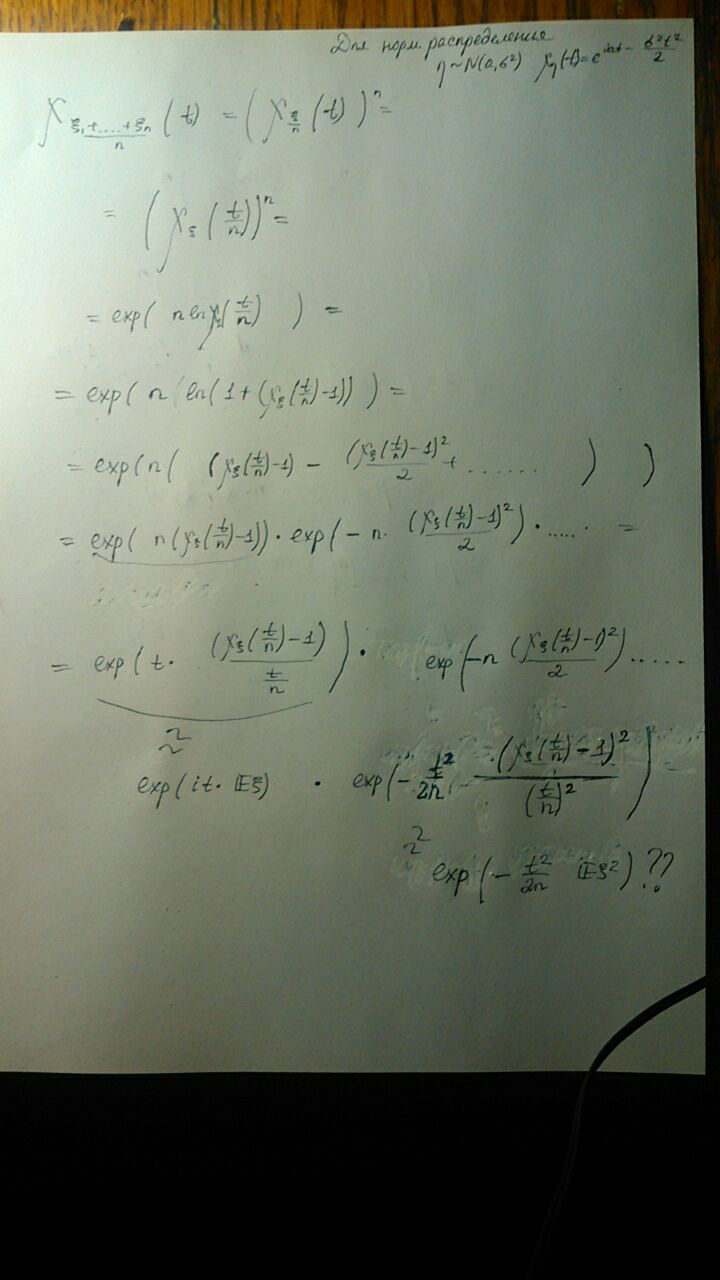 Для норм. распределение
η ~ N(a, σ²)  χ_η(t) = e^{iat - σ²t²/2}
χ_{(ξ₁+....+ξₙ)/n} (t) = (χ_{ξ/n} (t))ⁿ =
= (χ_ξ (t/n))ⁿ =
= exp( n ln χ_ξ(t/n) ) =
= exp( n (ln(1 + (χ_ξ(t/n) - 1)) ) =
= exp( n ( (χ_ξ(t/n) - 1) - (χ_ξ(t/n) - 1)²/2 + ....... ) )
= exp( n (χ_ξ(t/n) - 1)) · exp( - n · (χ_ξ(t/n) - 1)²/2 ) · ..... =
= exp( t · (χ_ξ(t/n) - 1)/(t/n) ) · exp( - n (χ_ξ(t/n) - 1)²/2 ) .....
≈
exp( it · 𝔼ξ) · exp( - t²/2n · (χ_ξ(t/n) - 1)²/(t/n)² )
≈
exp( - t²/2n 𝔼ξ² ) ??